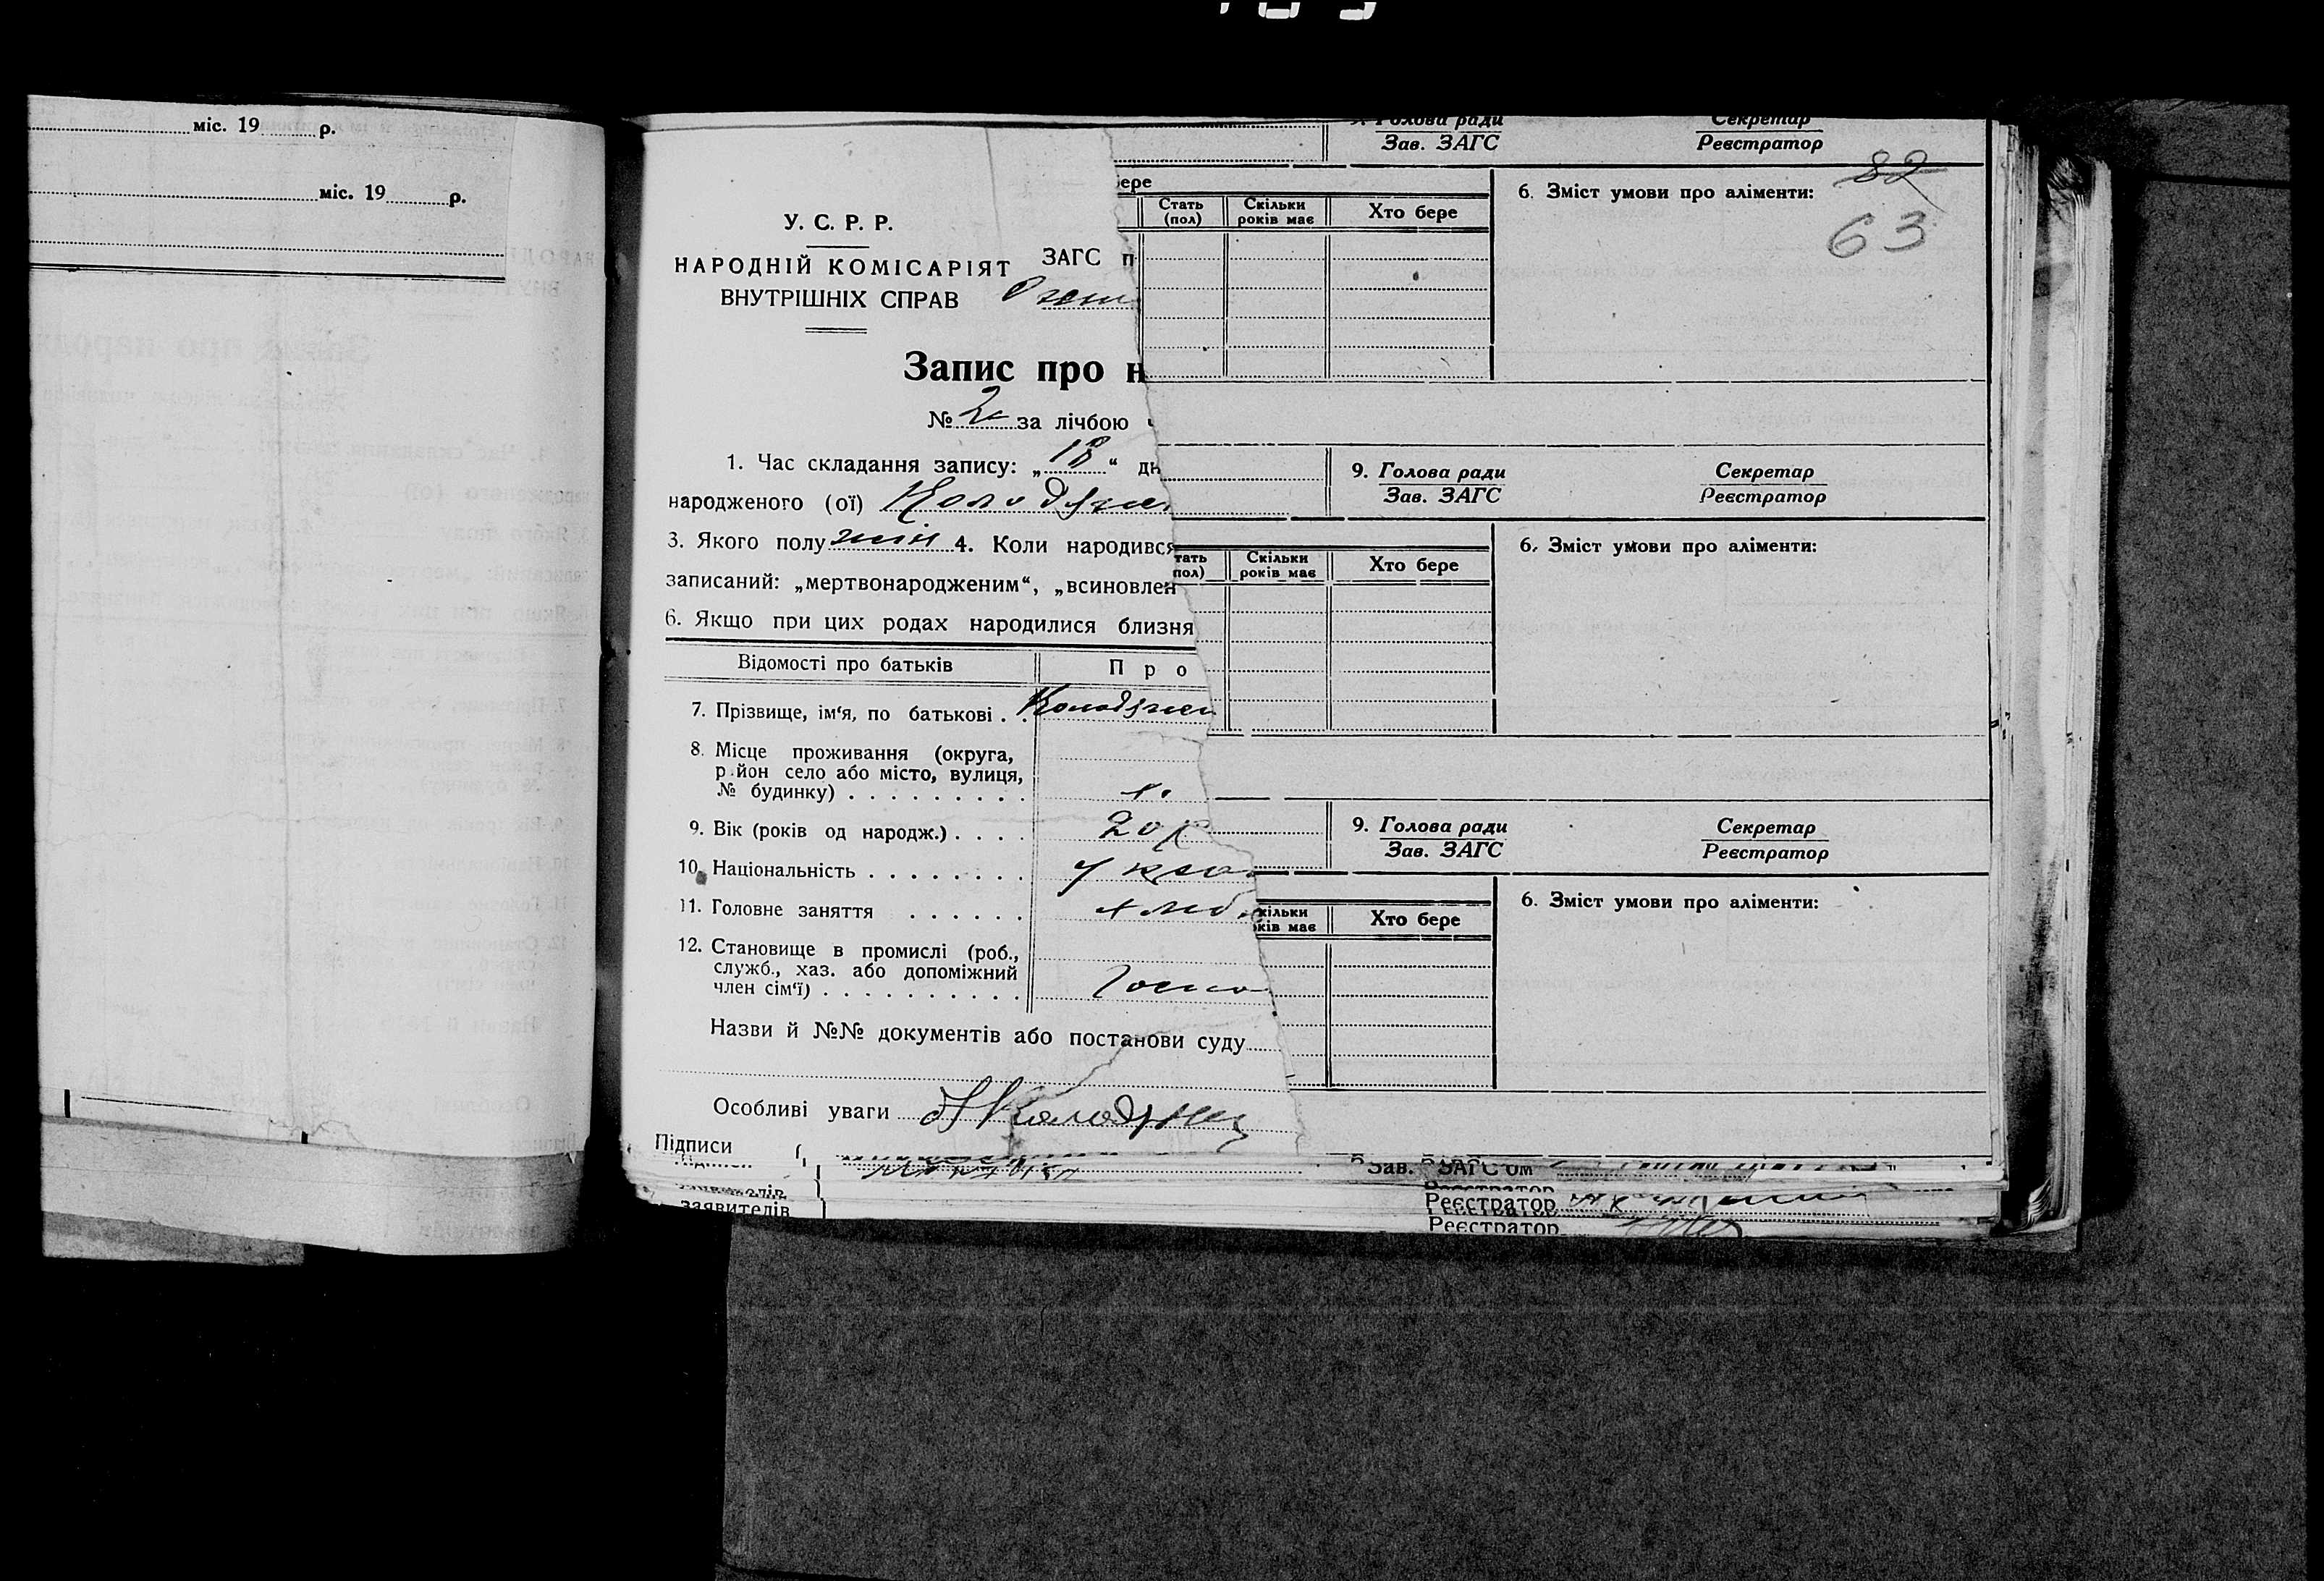 міс. 19 р.
міс. 19 р.
У. С. Р. Р.
НАРОДНІЙ КОМІСАРІЯТ
ВНУТРІШНІХ СПРАВ
ЗАГС п
Запис про н
№ 2 за лічбою
1. Час складання запису: „18“ дн
народженого (ої) Колодязн
3. Якого полу жін 4. Коли народився
записаний: „мертвонародженим“, „всиновлен
6. Якщо при цих родах народилися близня
Відомості про батьків П р о
7. Прізвище, ім‘я, по батькові . . Колодязн
8. Місце проживання (округа,
р йон село або місто, вулиця,
№ будинку) . . . . . . . . .
9. Вік (років од народж.) . . . . 20 р
10. Національність . . . . . . . . укра
11. Головне заняття . . . . . . хліб
12. Становище в промислі (роб.,
служб., хаз. або допоміжний
член сім‘ї) . . . . . . . . . . Госпо
Назви й №№ документів або постанови суду
Особливі уваги
Підписи
заявителів
Голова ради Секретар
Зав. ЗАГС Реєстратор
82
63
бере
Стать (пол) Скільки років має Хто бере
6. Зміст умови про аліменти:
9. Голова ради Секретар
Зав. ЗАГС Реєстратор
тать пол) Скільки років має Хто бере
6. Зміст умови про аліменти:
9. Голова ради Секретар
Зав. ЗАГС Реєстратор
кільки оків має Хто бере
6. Зміст умови про аліменти:
Зав. ЗАГС‘ом
Реєстратор
Реєстратор